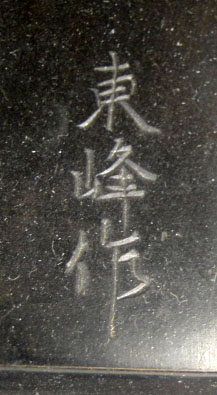 東峰作